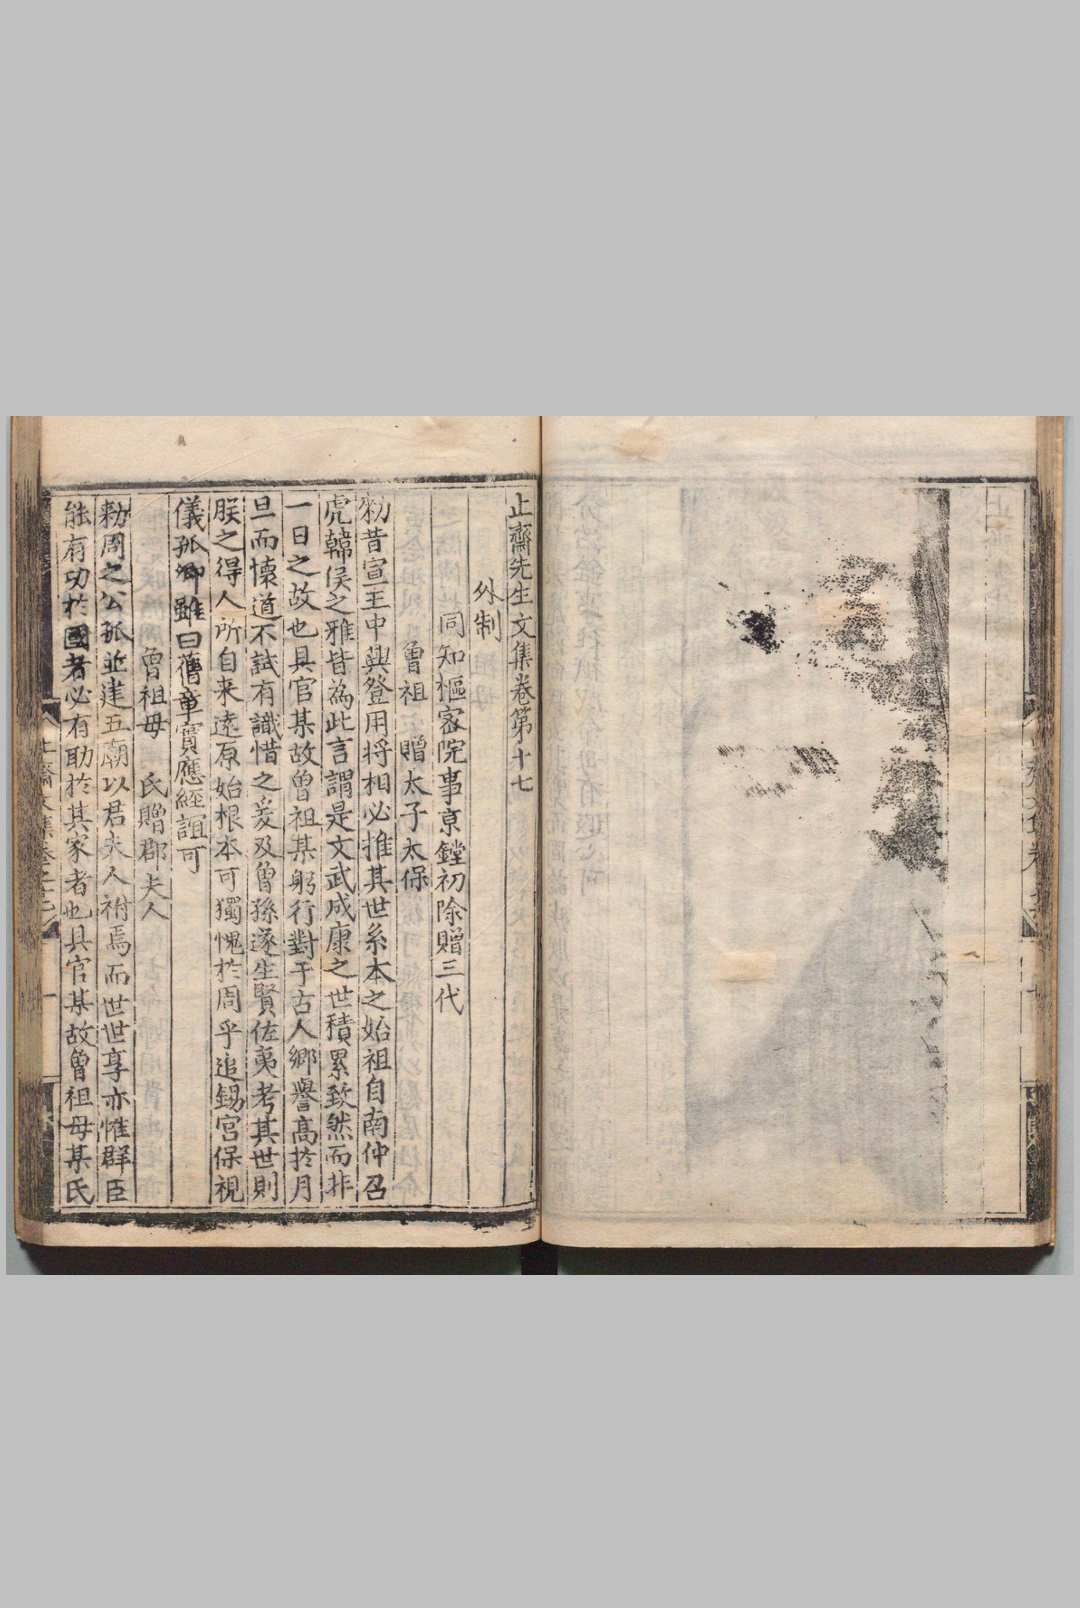 止齋先生文集卷第十七
外制
同知樞密院事京鏜初除贈三代
曾祖　贈太子太保
勑昔宣王中興登用將相必推其世系本之始祖自南仲召
虎韓侯之雅皆為此言謂是文武成康之世積累致然而非
一日之故也具官某故曾祖某躬行對于古人鄉譽高於月
旦而懷道不試有識惜之爰及曾孫遂生賢佐夷考其世則
朕之得人所自来遠原始根本可獨愧於周乎追錫宮保視
儀孤卿雖曰舊章實應經誼可
曾祖母　氏贈郡夫人
勑周之公孤並建五廟以君夫人祔焉而世世享亦惟群臣
能有功於國者必有助於其家者也具官某故曾祖母某氏
止齋文集卷之十七
一